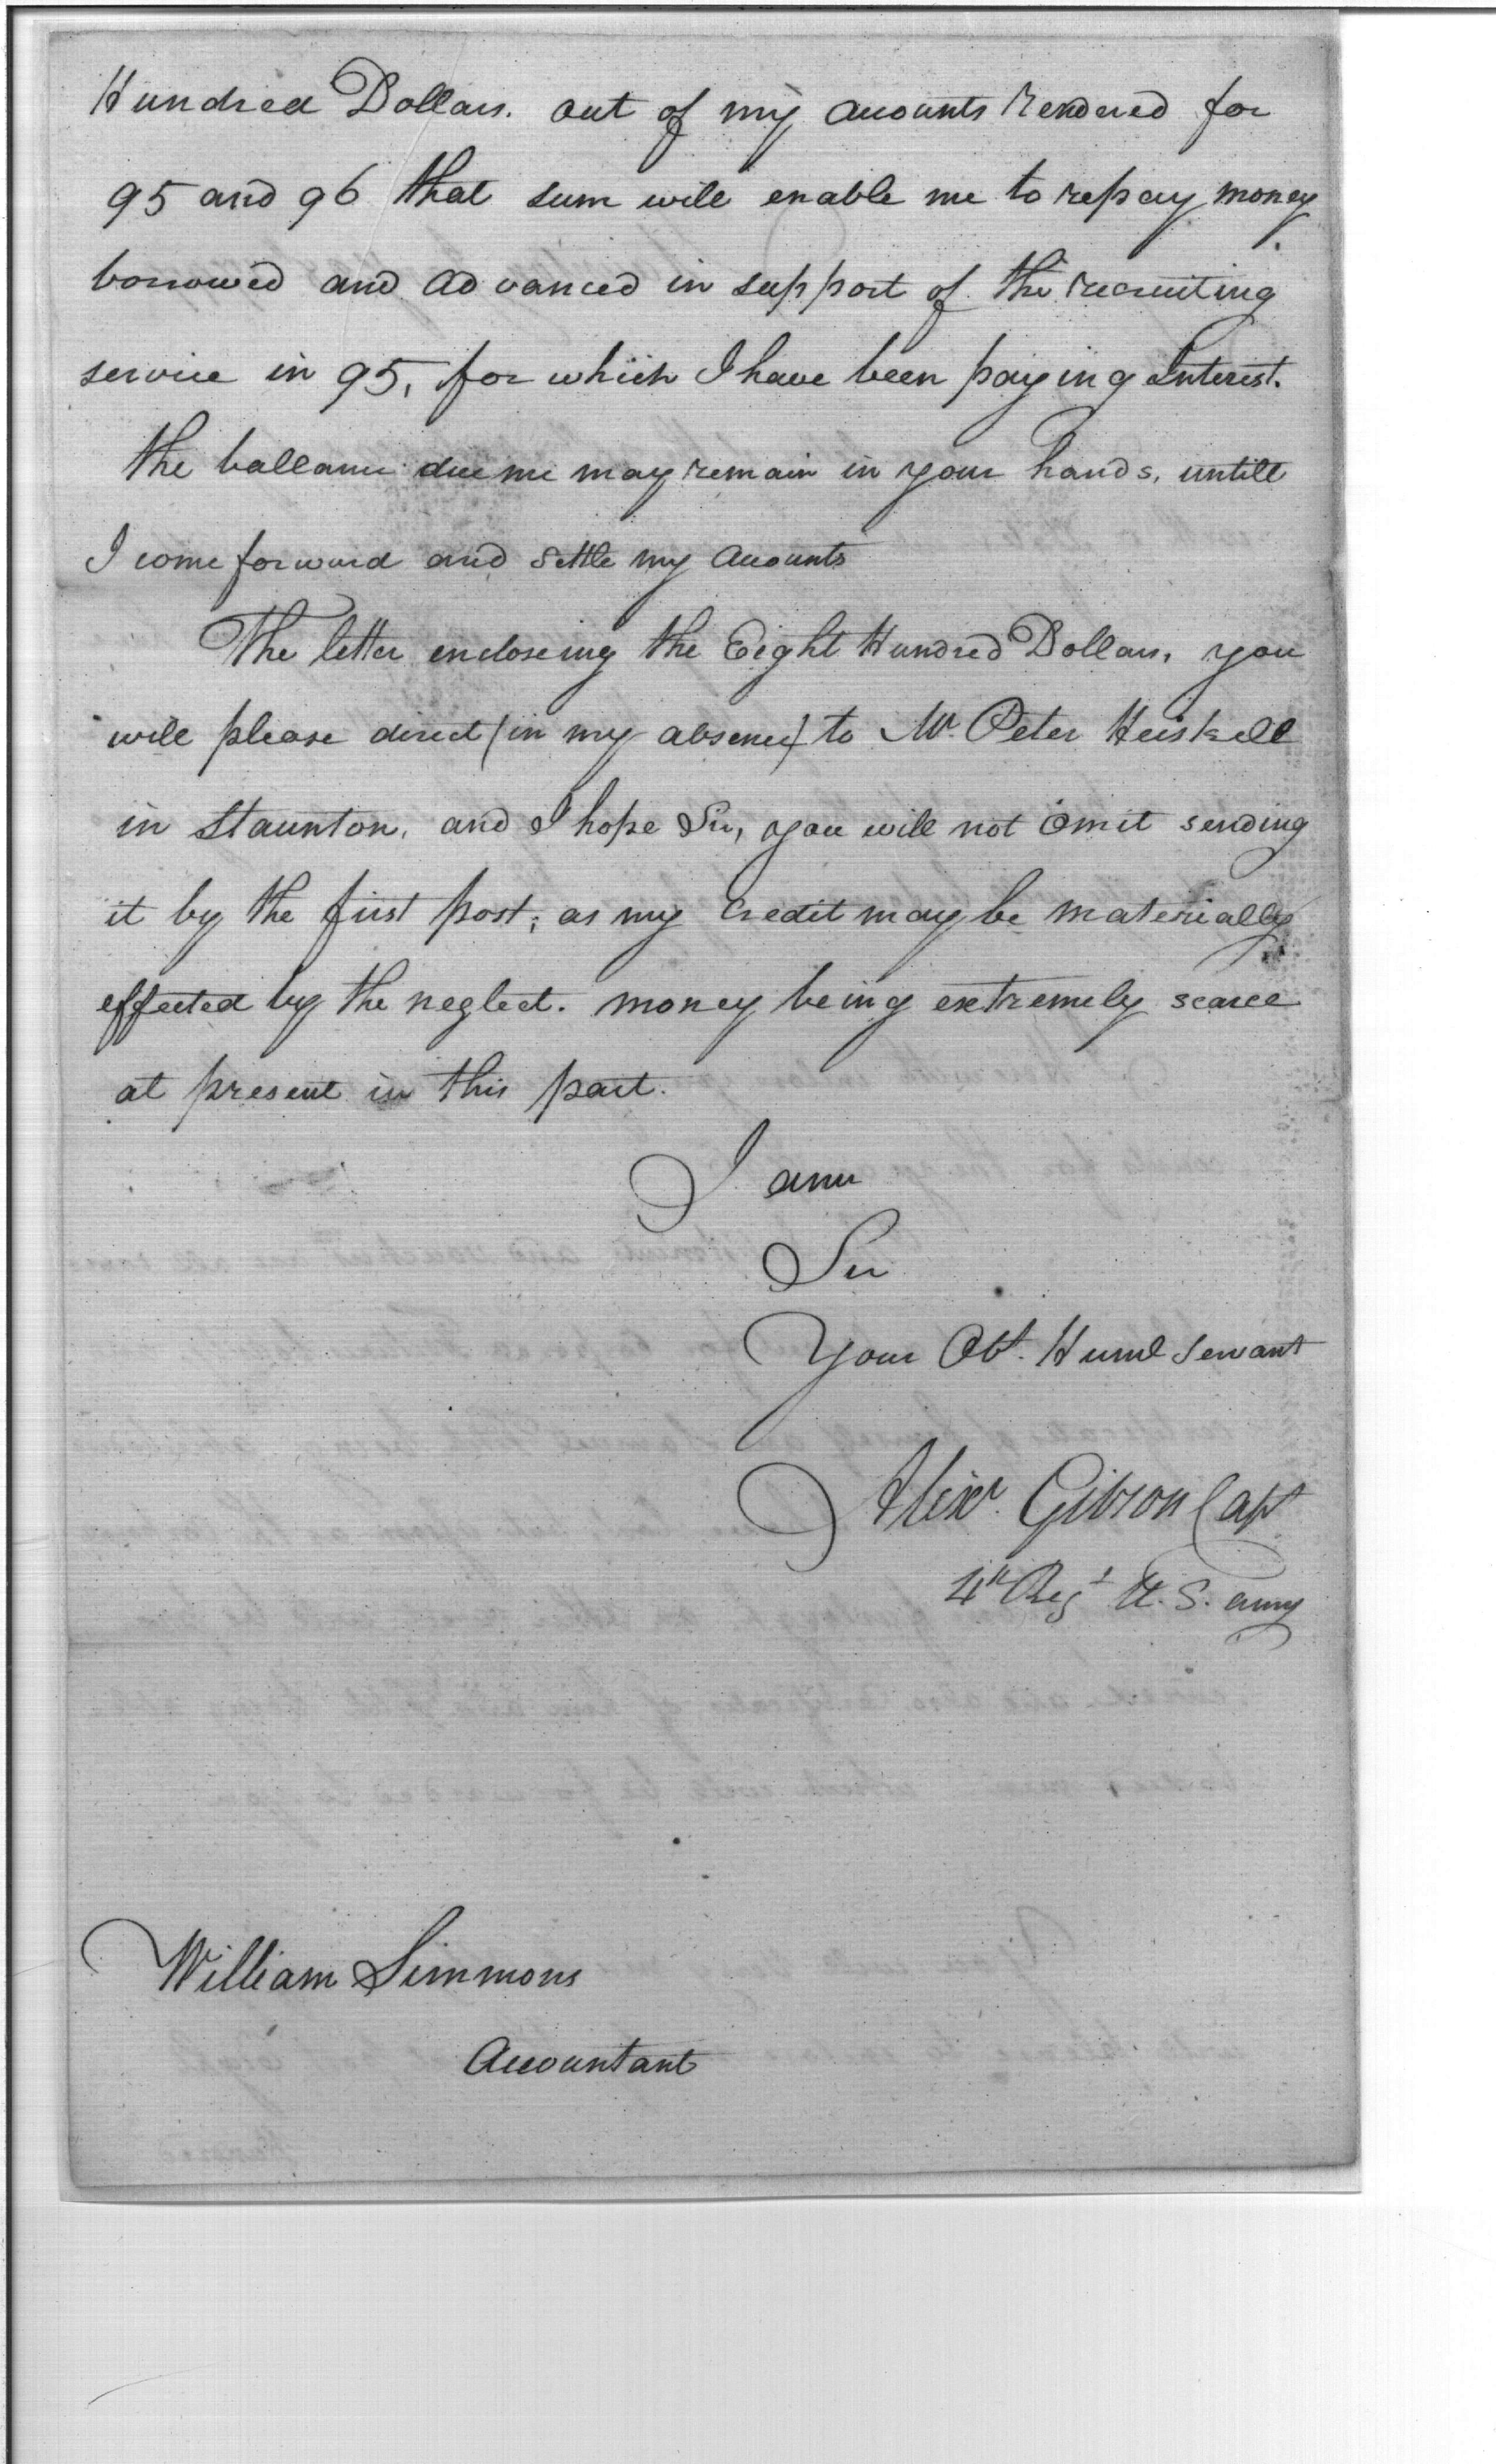 Hundred Dollars. out of my accounts rendered for
95 and 96 that sum will enable me to repay money
borrowed and advanced in support of the recruiting
service in 95, for which I have been paying Interest.
the ballance due me may remain in your hands, untill
I come forward and settle my accounts
The letter encloseing the Eight Hundred Dollars, you
will please direct (in my absence) to Mr. Peter Heiskell
in Staunton, and I hope Sir, you will not omit sending
it by the first post; as my credit may be materially
effected by the neglect. money being extremely scarce
at present in this part.
I am
Sir
Your Obt. Huml servant
Alexr. Gibson Capt
4th Regt U.S. army
William Simmons
Accountant